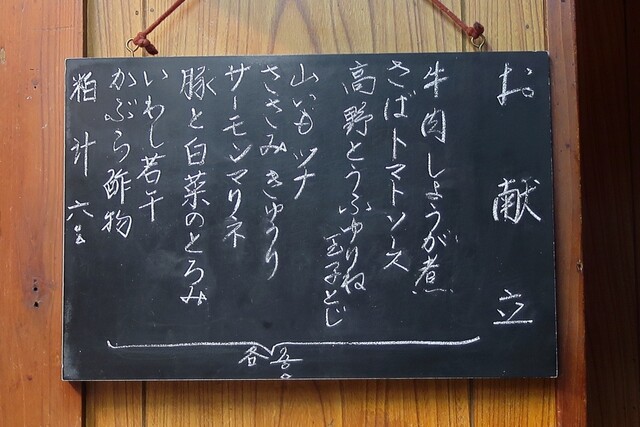 お献立
牛肉しょうが煮
さばトマトソース
高野とうふゆりね
玉子とじ
山いもツナ
ささみきゅうり
サーモンマリネ
豚と白菜のとろみ
いわし若干
かぶら酢物
粕汁 六
各